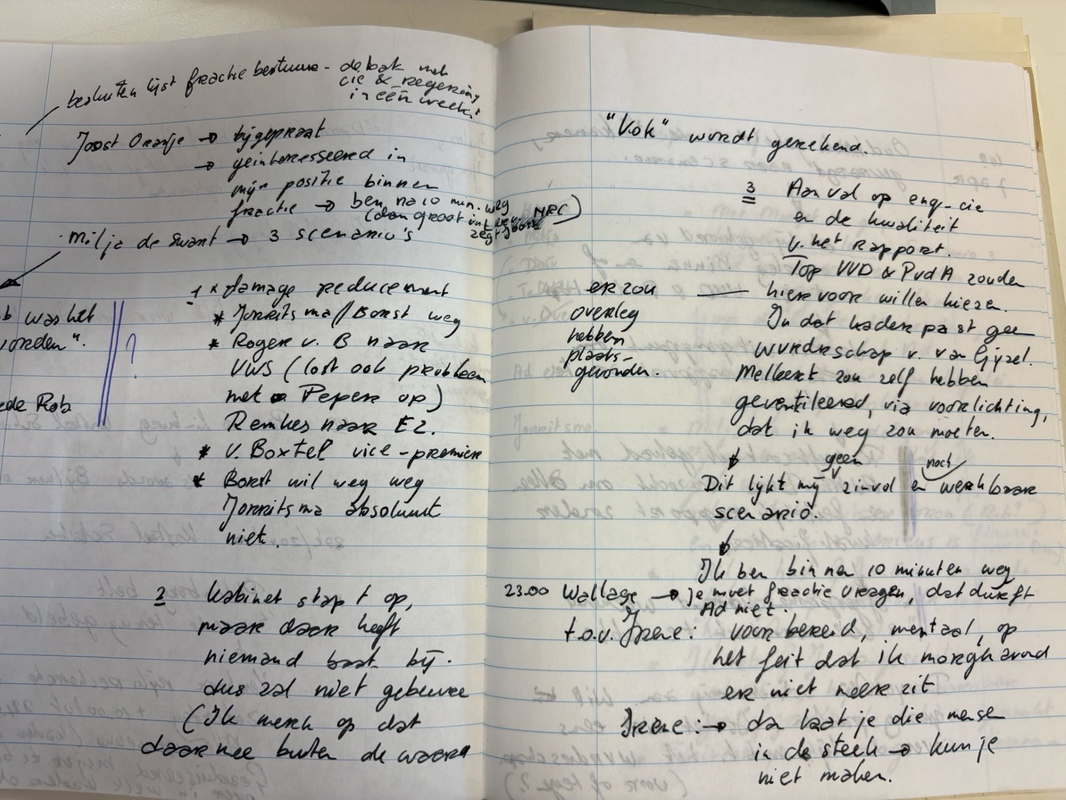 besluiten lijst fractie bestuur - debat met
cie & regering
in één week!
Joost Oranje → bijgepraat
→ geinteresseerd in
mijn positie binnen
fractie → ben na 10 min. weg
(dan groot int NRC)
milja de Zwart → 3 scenario's
1 * damage reducement
* Jorritsma/Borst weg
* Roger v. B naar
VWS (lost ook probleem
met Peper op)
Remkes naar EZ.
* v. Boxtel vice-premier
* Borst wil weg weg
Jorritsma absoluut
niet.
b was het
worden".
?
ede Rob
2 kabinet stapt op,
maar daar heeft
niemand baat bij.
dus zal niet gebeuren
(Ik merk op dat
daarmee buiten de waard
"Kok" wordt gerekend.
3 Aanval op enq-cie
en de kwaliteit
v. het rapport.
Top VVD & PvdA zouden
hiervoor willen kiezen.
er zou
overleg
hebben
plaats-
gevonden.
In dat kader past geen
woordvoerderschap v. van Gijzel.
Melkert zou zelf hebben
geventileerd, via voorlichting,
dat ik weg zou moeten.
↓
Dit lijkt mij geen zinvol en noch werkbaar
scenario.
↓
Ik ben binnen 10 minuten weg
23.00 Wallage → je moet fractie vragen, dat durft
Ad niet.
t.o.v. Irene: voorbereid, mentaal, op
het feit dat ik morgenavond
er niet meer zit
Irene: → dan laat je die mensen
in de steek → kun je
niet maken.